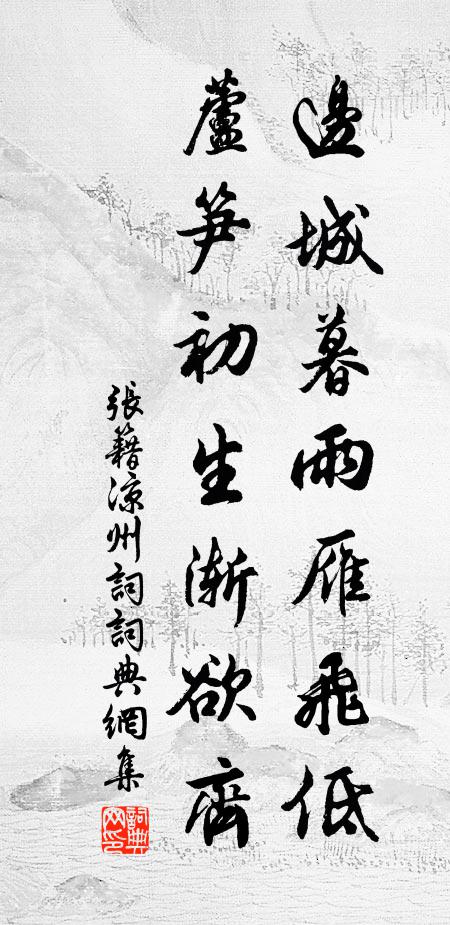 邊城暮雨雁飛低
蘆笋初生漸欲齊
張籍涼州詞詞典網集
詞典网印